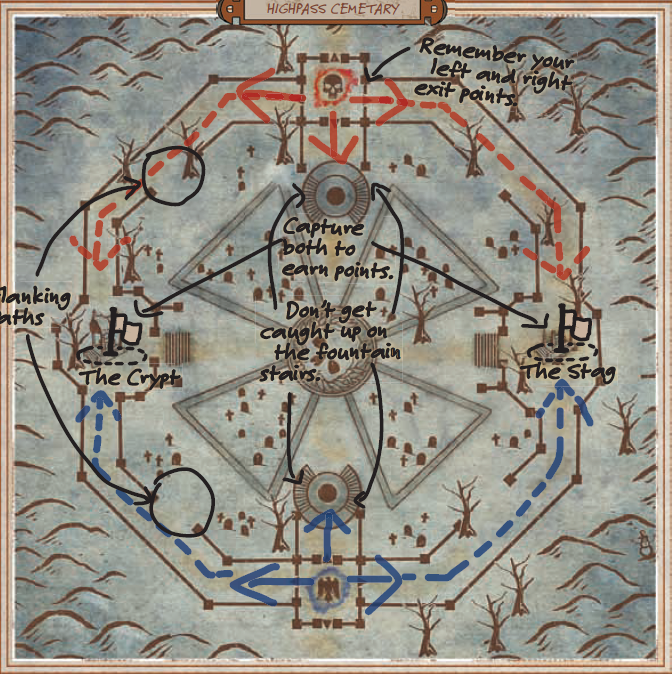 HIGHPASS CEMETARY
Remember your
left and right
exit points.
Capture
both to
earn points.
lanking
aths
Don't get
caught up on
the fountain
stairs.
The Crypt
The Stag